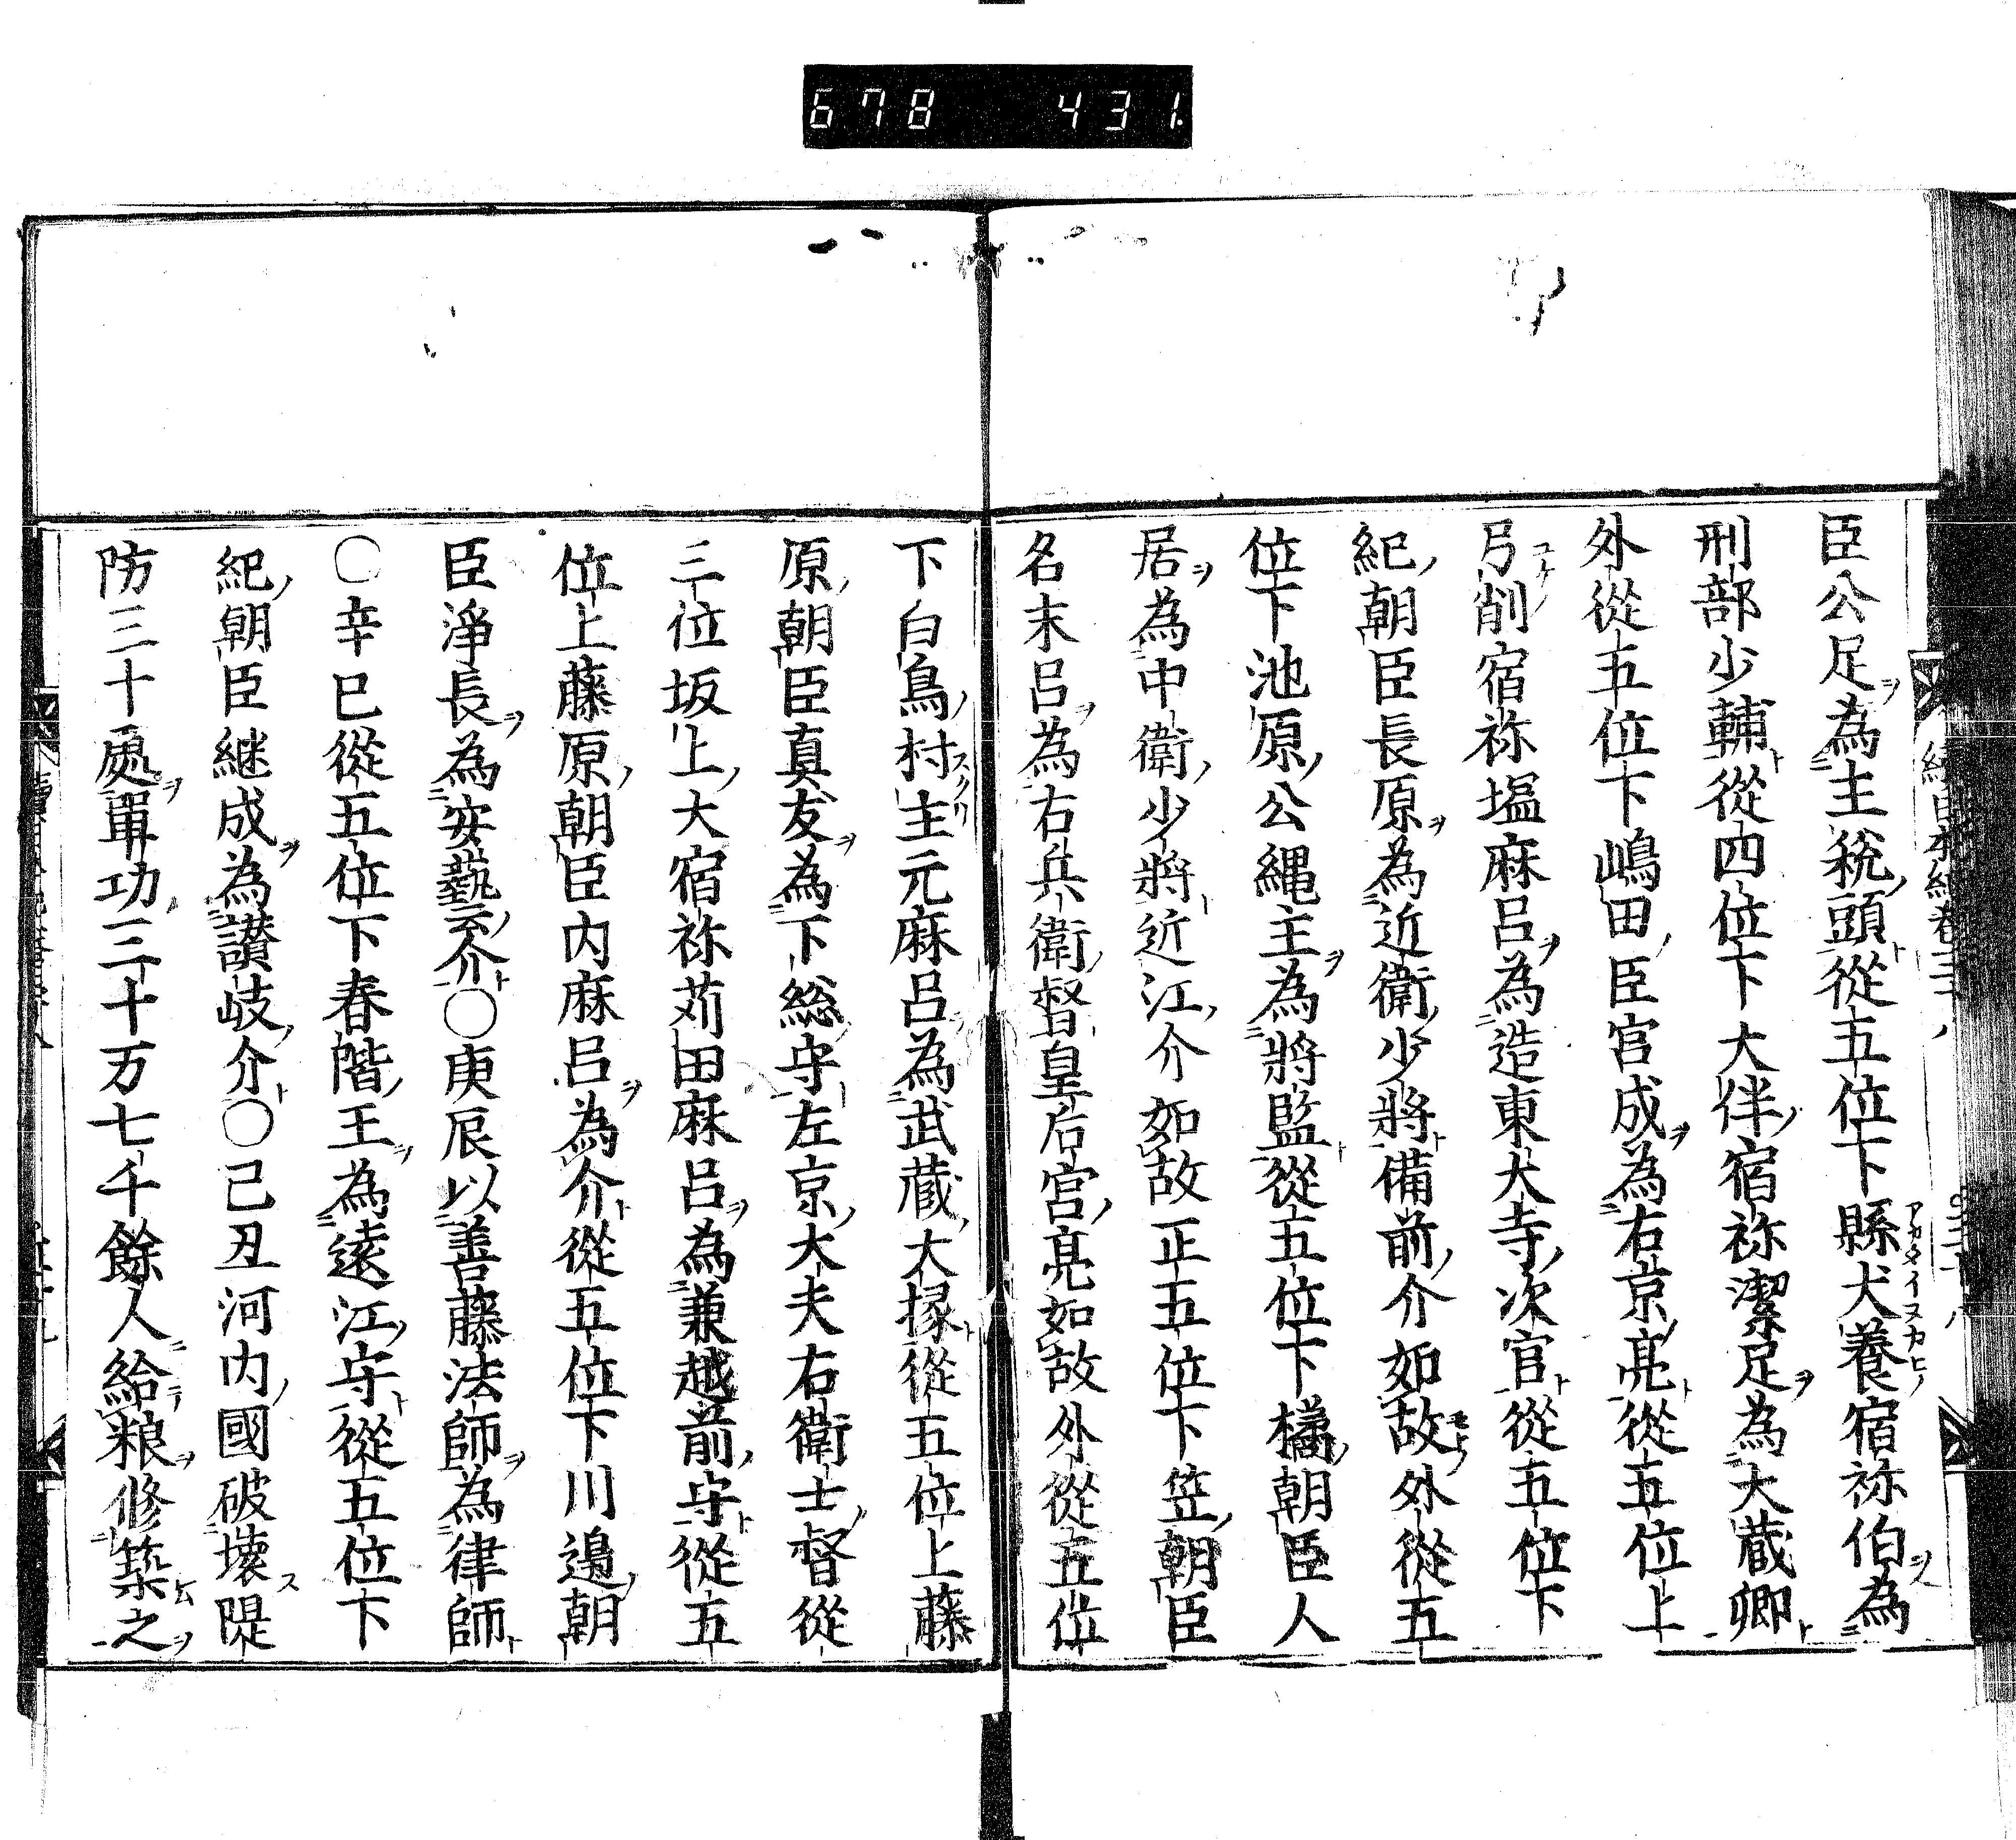 678 431
臣公足ヲ為主税頭ト從五位下縣犬養宿祢伯ヲ為
刑部少輔ト從四位下大伴宿祢潔足ヲ為大蔵卿ト
外從五位下嶋田臣宮成ヲ為右京亮ト從五位上
弓削宿祢塩麻呂ヲ為造東大寺次官ト從五位下
紀朝臣長原ヲ為近衛少将ト備前介如故外從五
位下池原公縄主ヲ為將監ト從五位下橘朝臣人
居ヲ為中衛少將ト近江介如故正五位下笠朝臣
名末呂ヲ為右兵衛督皇后宮亮如故外從五位
下白鳥村主元麻呂為武蔵大掾ト從五位上藤
原朝臣真友ヲ為下総守ト左京大夫右衛士督從
三位坂上大宿祢苅田麻呂ヲ為兼越前守ト從五
位上藤原朝臣内麻呂ヲ為介ト從五位下川邉朝
臣淨長ヲ為安藝介ト〇庚辰以善藤法師ヲ為律師ト
〇辛巳從五位下春階王ヲ為遠江守ト從五位下
紀朝臣継成ヲ為讃岐介ト〇己丑河内國破壊ス隄
防三十處ヲ單功三十万七千餘人ニ給テ粮ヲ修築之ヲ